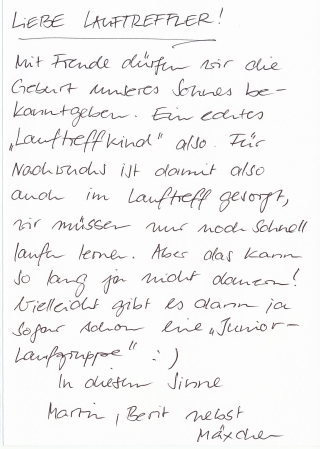 LIEBE LAUFTREFFLER!
Mit Freude dürfen wir die
Geburt unseres Sohnes be-
kanntgeben. Ein echtes
„Lauftreffkind" also. Für
Nachwuchs ist damit also
auch im Lauftreff gesorgt,
wir müssen nur noch schnell
laufen lernen. Aber das kann
so lang ja nicht dauern!
Vielleicht gibt es dann ja
sogar schon eine „Junior-
Laufgruppe" :)
In diesem Sinne
Martin, Berit nebst
Mäxchen